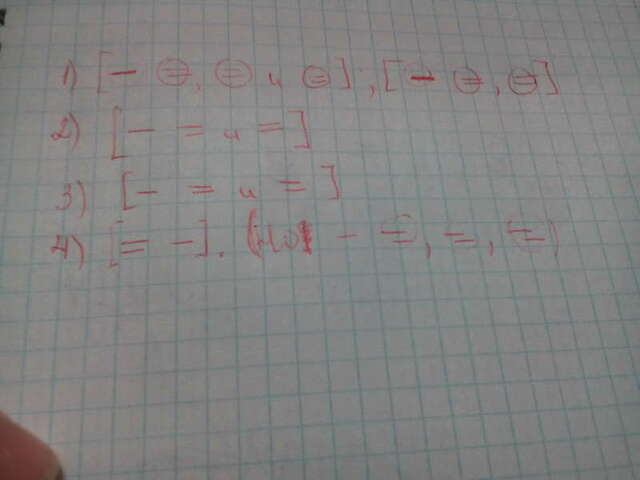 1) [- =, = и =]; [- =, =]
2) [- = и =]
3) [- = и =]
4) [= -]. ( - =, =, =)